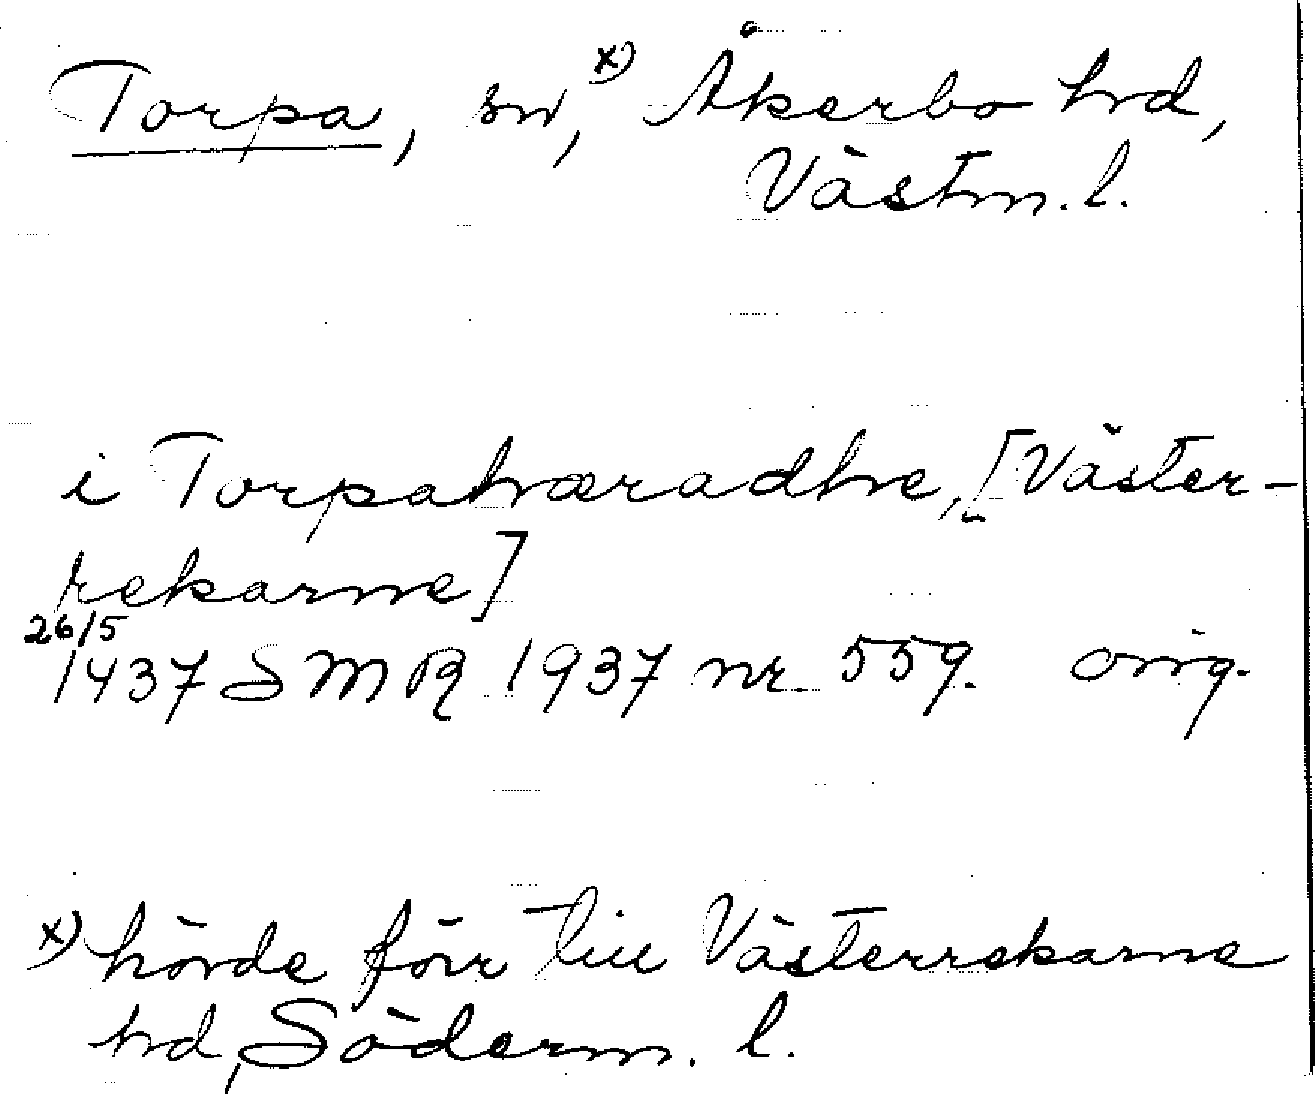 Torpa, sn,x) Åkerbo hd,
Västm. l.
i Torpahæradhe, [Väster-
rekarne]
26/5
1437 SMR 1937 nr 559. orig.
x) hörde förr till Västerrekarne
hd, Söderm. l.